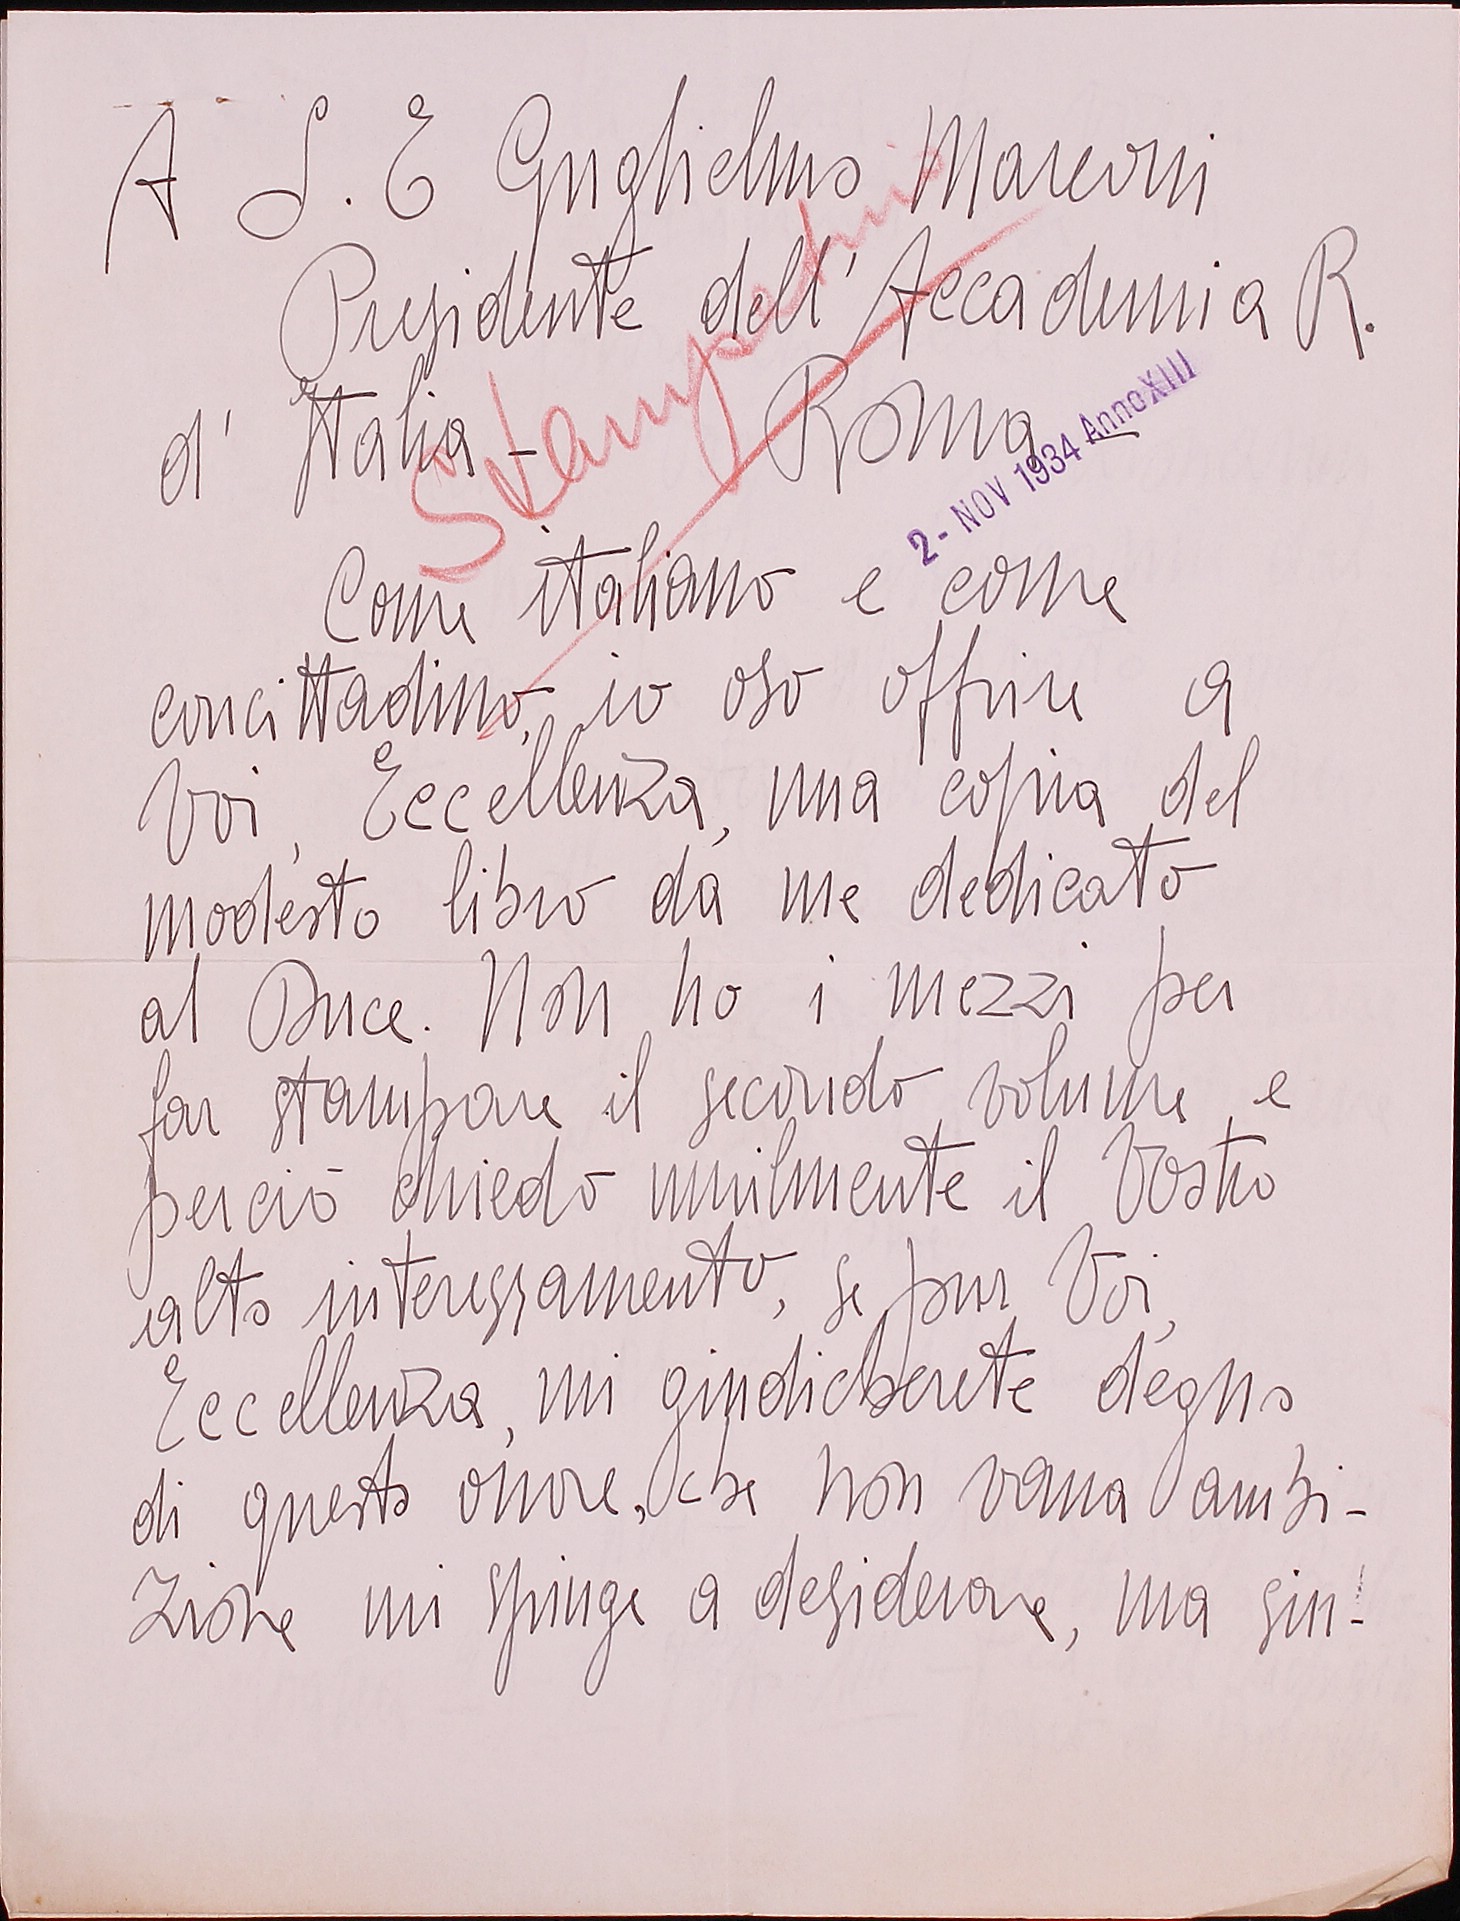 A S. E Guglielmo Marconi
Presidente dell' Accademia R.
d' Italia - Roma -
Stampatino
2 - NOV 1934 Anno XIII
Come italiano e come
concittadino, io oso offrire a
Voi, Eccellenza, una copia del
modesto libro da me dedicato
al Duce. Non ho i mezzi per
far stampare il secondo volume, e
perciò chiedo umilmente il Vostro
alto interessamento, se pur Voi,
Eccellenza, mi giudicherete degno
di questo onore, che non vana ambi-
zione mi spinge a desiderare, ma sin-